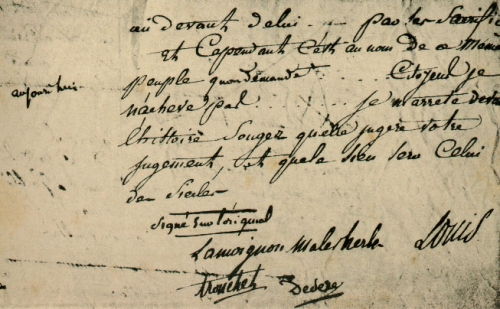 au devant de lui . . . par les Sacrific
et Cependant C'est au nom de ce même
peuple qu'on demande . . . . . Citoyens je
aujourd'hui
n'acheve pas . . . . . . je m'arrete devant
l'histoire Songez qu'elle jugera votre
jugement, et que le Sien sera Celui
des Siecles
Signé sur l'original
Lamoignon Malesherbes Louis
Tronchet Deseze